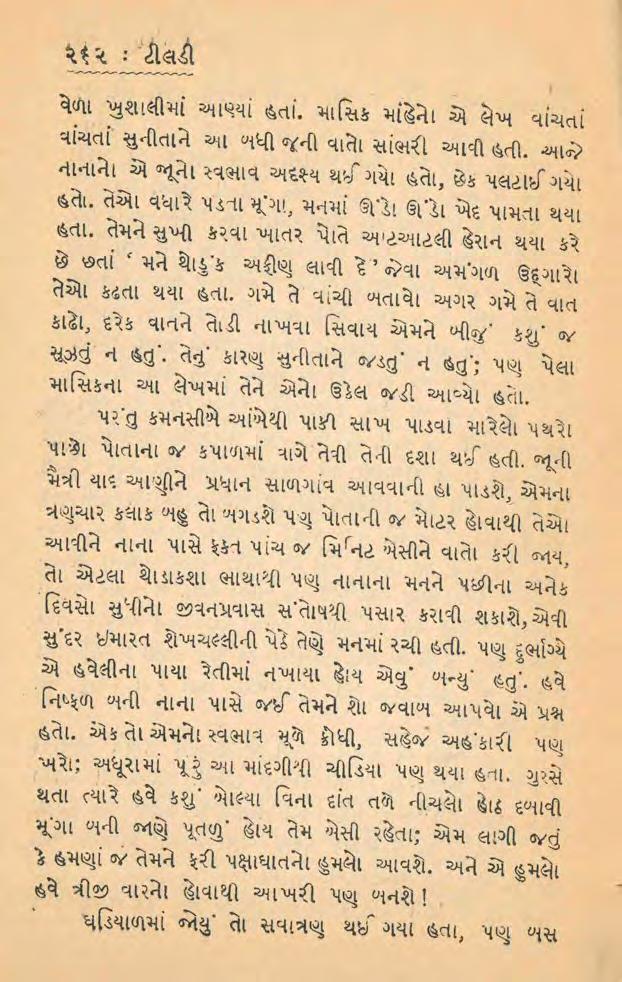 ૨૬૨ : ટીલડી
વેળા ખુશાલીમાં આણ્યાં હતાં. માસિક માંહેનો એ લેખ વાંચતાં
વાંચતાં સુનીતાને આ બધી જૂની વાતો સાંભરી આવી હતી. આજે
નાનાનો એ જૂનો સ્વભાવ અદૃશ્ય થઈ ગયો હતો, છેક પલટાઈ ગયો
હતો. તેઓ વધારે પડતા મૂંગા, મનમાં ઊંડો ઊંડો ખેદ પામતા થયા
હતા. તેમને સુખી કરવા ખાતર પોતે આટઆટલી હેરાન થયા કરે
છે છતાં ‘ મને થોડુંક અફીણ લાવી દે’ જેવા અમંગળ ઉદ્ગારો
તેઓ કઢતા થયા હતા. ગમે તે વાંચી બતાવો અગર ગમે તે વાત
કાઢો, દરેક વાતને તોડી નાખવા સિવાય એમને બીજું કશું જ
સૂઝતું ન હતું. તેનું કારણ સુનીતાને જડતું ન હતું; પણ પેલા
માસિકના આ લેખમાં તેને એનો ઉકેલ જડી આવ્યો હતો.
પરંતુ કમનસીબે આંબેથી પાકી સાખ પાડવા મારેલો પથરો
પાછો પોતાના જ કપાળમાં વાગે તેવી તેની દશા થઈ હતી. જૂની
મૈત્રી યાદ આણીને પ્રધાન સાળગાંવ આવવાની હા પાડશે, એમના
ત્રણચાર કલાક બહુ તો બગડશે પણ પોતાની જ મોટર હોવાથી તેઓ
આવીને નાના પાસે ફક્ત પાંચ જ મિનિટ બેસીને વાતો કરી જાય,
તો એટલા થોડાકશા ભાથાથી પણ નાનાના મનને પછીના અનેક
દિવસો સુધીનો જીવનપ્રવાસ સંતોષથી પસાર કરાવી શકાશે, એવી
સુંદર ઇમારત શેખચલ્લીની પેઠે તેણે મનમાં રચી હતી. પણ દુર્ભાગ્યે
એ હવેલીના પાયા રેતીમાં નખાયા હોય એવું બન્યું હતું. હવે
નિષ્ફળ બની નાના પાસે જઈ તેમને શો જવાબ આપવો એ પ્રશ્ન
હતો. એક તો એમનો સ્વભાવ મૂળે ક્રોધી, સહેજ અહંકારી પણ
ખરો; અધૂરામાં પૂરું આ માંદગીથી ચીડિયા પણ થયા હતા. ગુસ્સે
થતા ત્યારે હવે કશું બોલ્યા વિના દાંત તળે નીચલો હોઠ દબાવી
મૂંગા બની જાણે પૂતળું હોય તેમ બેસી રહેતા; એમ લાગી જતું
કે હમણાં જ તેમને ફરી પક્ષાઘાતનો હુમલો આવશે. અને એ હુમલો
હવે ત્રીજી વારનો હોવાથી આખરી પણ બનશે!
ઘડિયાળમાં જોયું તો સવાત્રણ થઈ ગયા હતા, પણ બસ